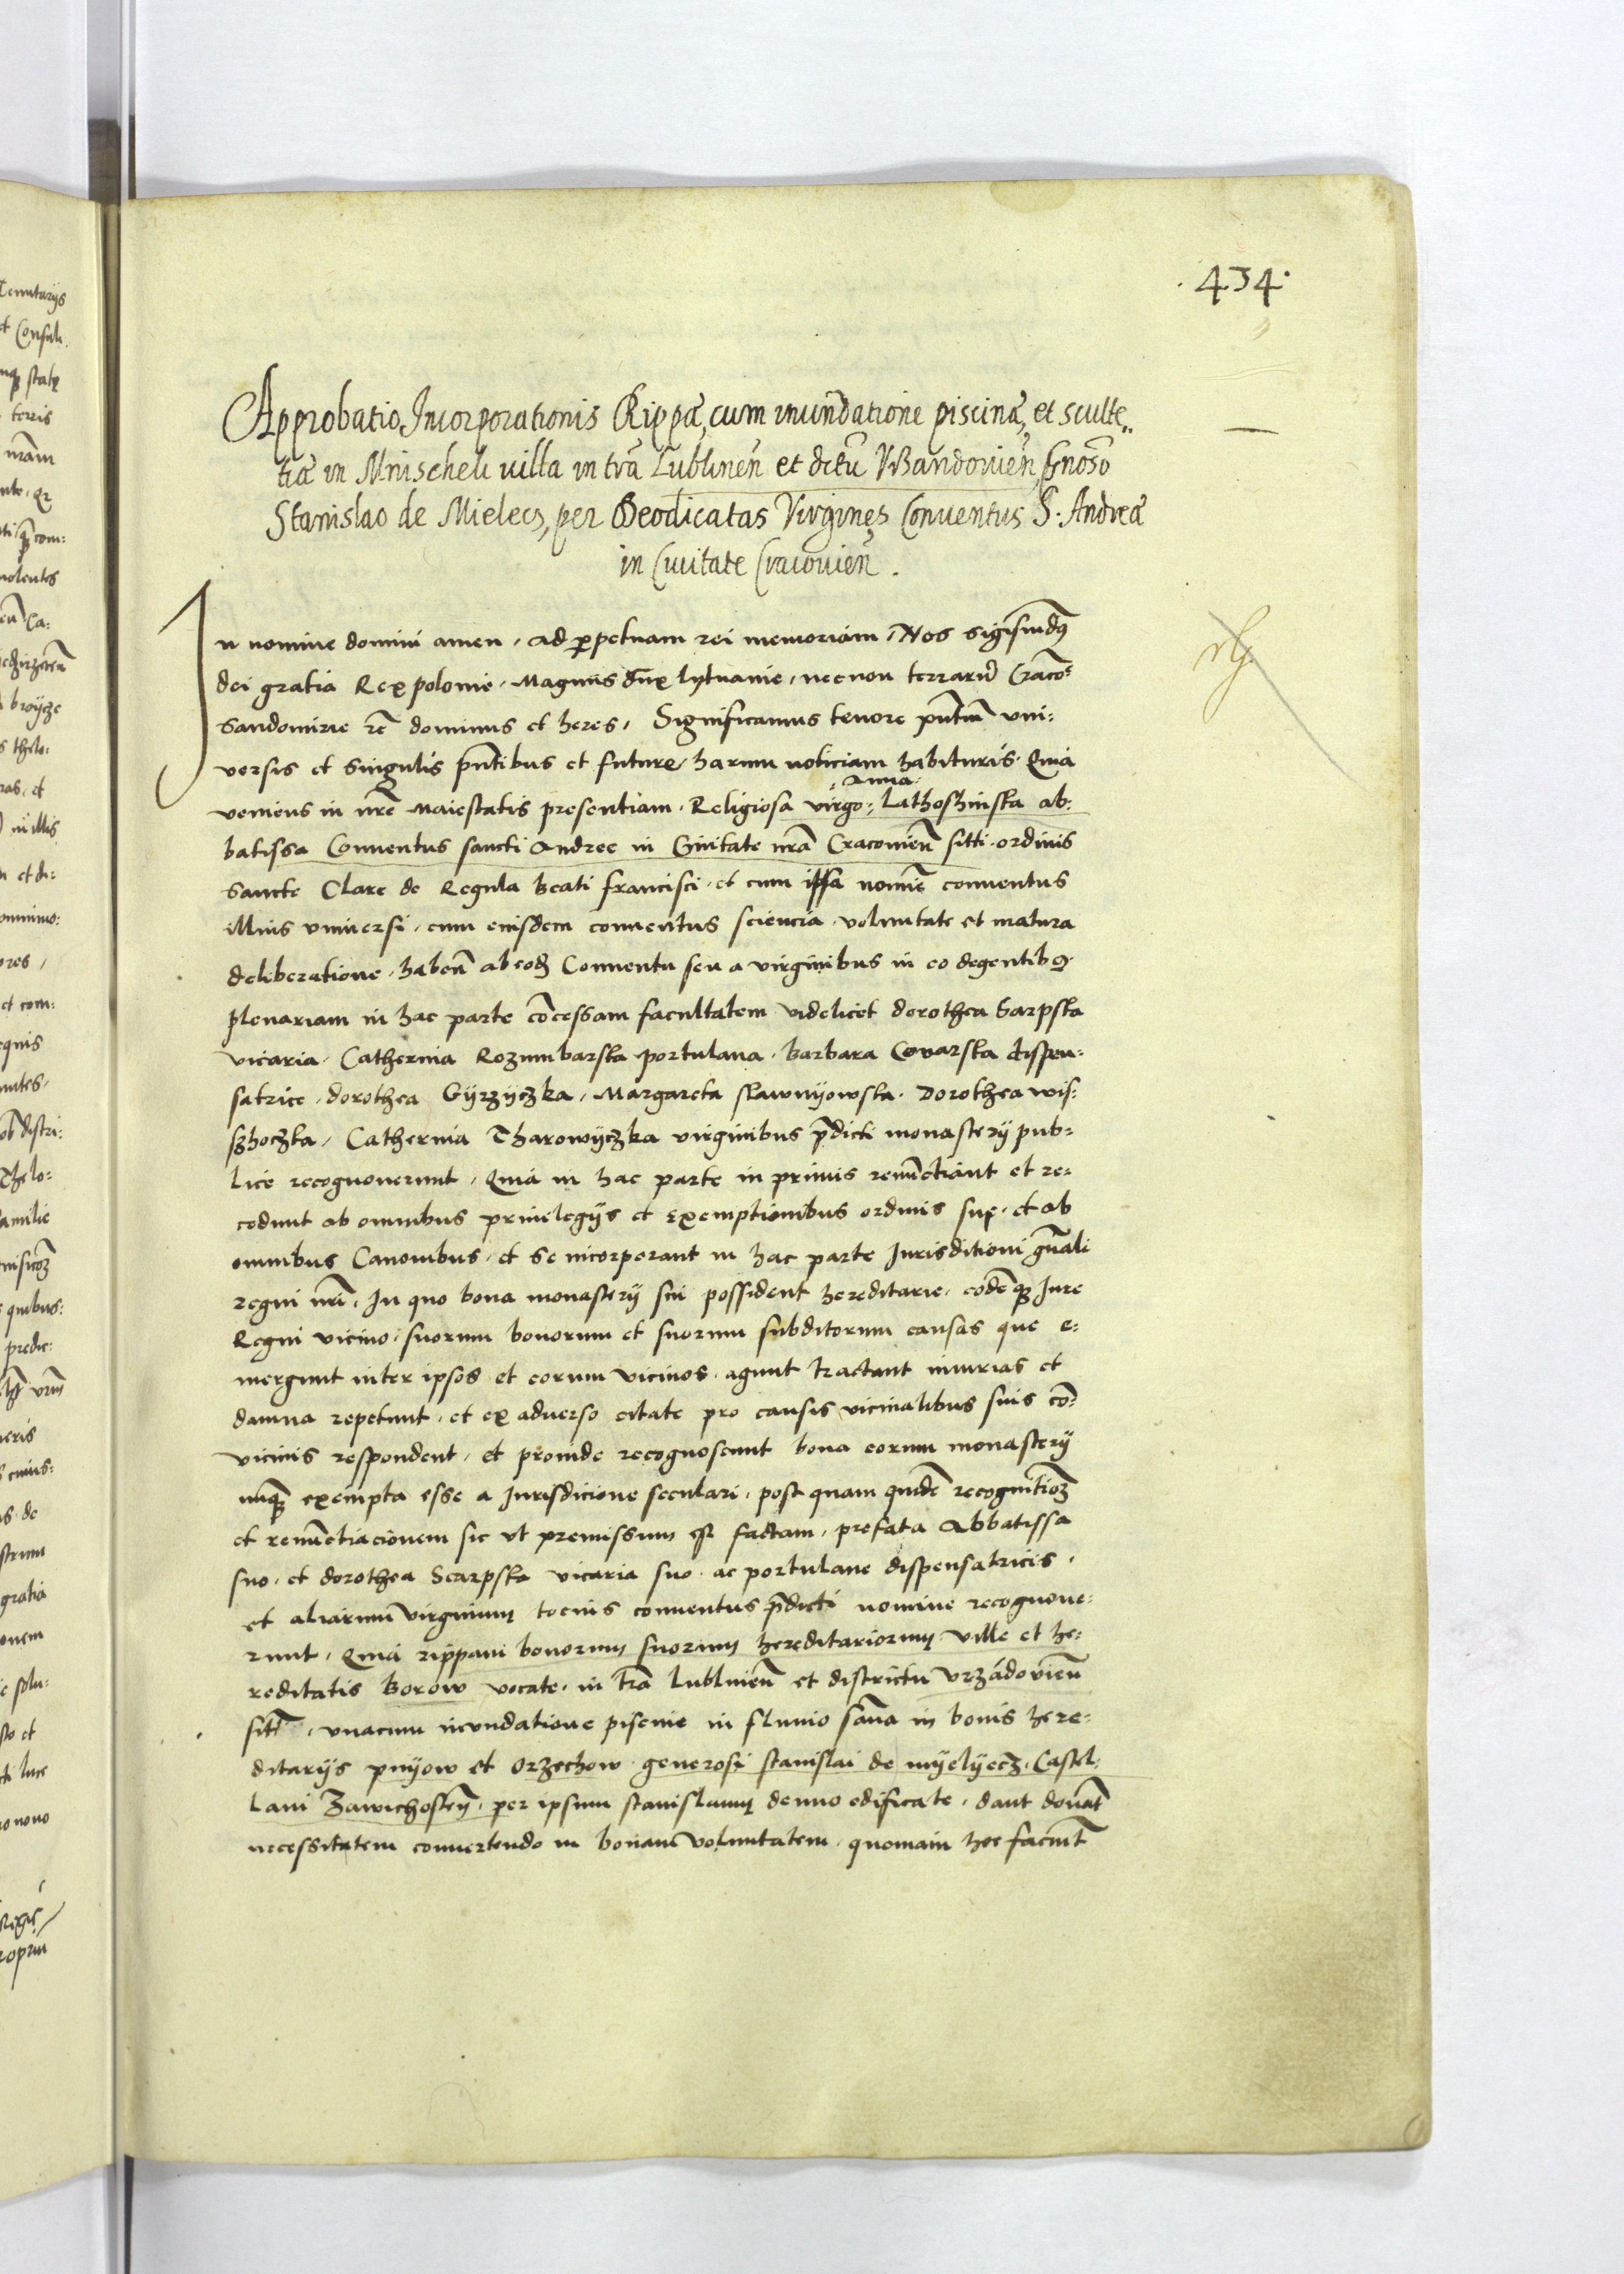 .434.
Approbatio Incorporationis Rippæ, cum inundatione piscinæ, et sculte„
tiæ in Mnischeh villa in trā Lublineñ et dctū Wandovień Gnoso
Stanislao de Mielecz, per Deodicatas Virgines Conventus S. Andreæ
in Civitate Cracovień.
In nomine domini amen, ad ꝑpetuam rei memoriam, Nos Sigismūdꝰ
dei gratia Rex polonie, Magnus dux lytuanie, necnon terrarū Craco:
Sandomirie rc̄ dominus et heres, Significamus tenore pn̄tiū vni:
versis et singulis pn̄tibus et future, harum noticiam habituris. Quia
Anna
veniens in nr̄e Maiestatis presentiam, Religiosa virgo, Lathoshinska ab:
batissa Conventus sancti Andree in Civitate nrā Cracovień sitti, ordinis
Sancte Clare de Regula Beati francisci, et cum ipsa nomīe conventus
illius vniversi, cum eiusdem conventus sciencia, voluntate et matura
deliberatione, habeñ ab eodē Conventu seu a virginibus in eo degentibꝫ
plenariam in hac parte cōcessam facultatem videlicet dorothea Sarpska
vicaria, Catherina Rozumbarska portulana, barbara Covarska dispen:
satrice, dorothea Gÿrzÿczka, Margareta slawnÿowska, Dorothea wis:
szhoczka, Catherina Tharowÿczka virginibus p̄dicti monasterÿ pub:
lice recognoverunt, Quia in hac parte in primis renūctiant et re:
cedunt ab omnibus privilegÿs et exemptionibus ordinis sue, et ab
omnibus Canonibus, et se incorporant in hac parte Jurisditioni gn̄ali
regni nr̄i, In quo bona monasterÿ sui possident hereditarie, eodēqꝫ Jure
Regni vicino, suorum bonorum et suorum subditorum causas que e:
mergunt inter ipsos et eorum vicinos, agunt tractant iniurias et
damna repetunt, et ex adverso citate pro causis vicinalibus suis cō
vicinis respondent, et proinde recognoscunt bona eorum monasterÿ
nūqꝫ exempta esse a Jurisdicione seculari, post quam quidē recognitioē
et renūctiacionem sic vt premissum est factam, prefata Abbatissa
suo, et dorothea Scarpska vicaria suo, ac portulane dispensatricis,
et aliarum virginum tocius conventus p̄dicti nomine recognove:
runt, Quia rippam bonorum suorum hereditariorum ville et he:
reditatis Borow vocate, in trā lublinień et districtu vrządovień
sitt, vnacum inundatione piscine in fluvio sāna in bonis here:
ditarÿs pnÿow et Orzechow generosi stanislai de mÿelÿecz, Castel:
lani Zawichosteń, per ipsum stanislaum denuo edificate, dant donāt
necessitatem convertendo in bonam voluntatem, quoniam hoc faciūt